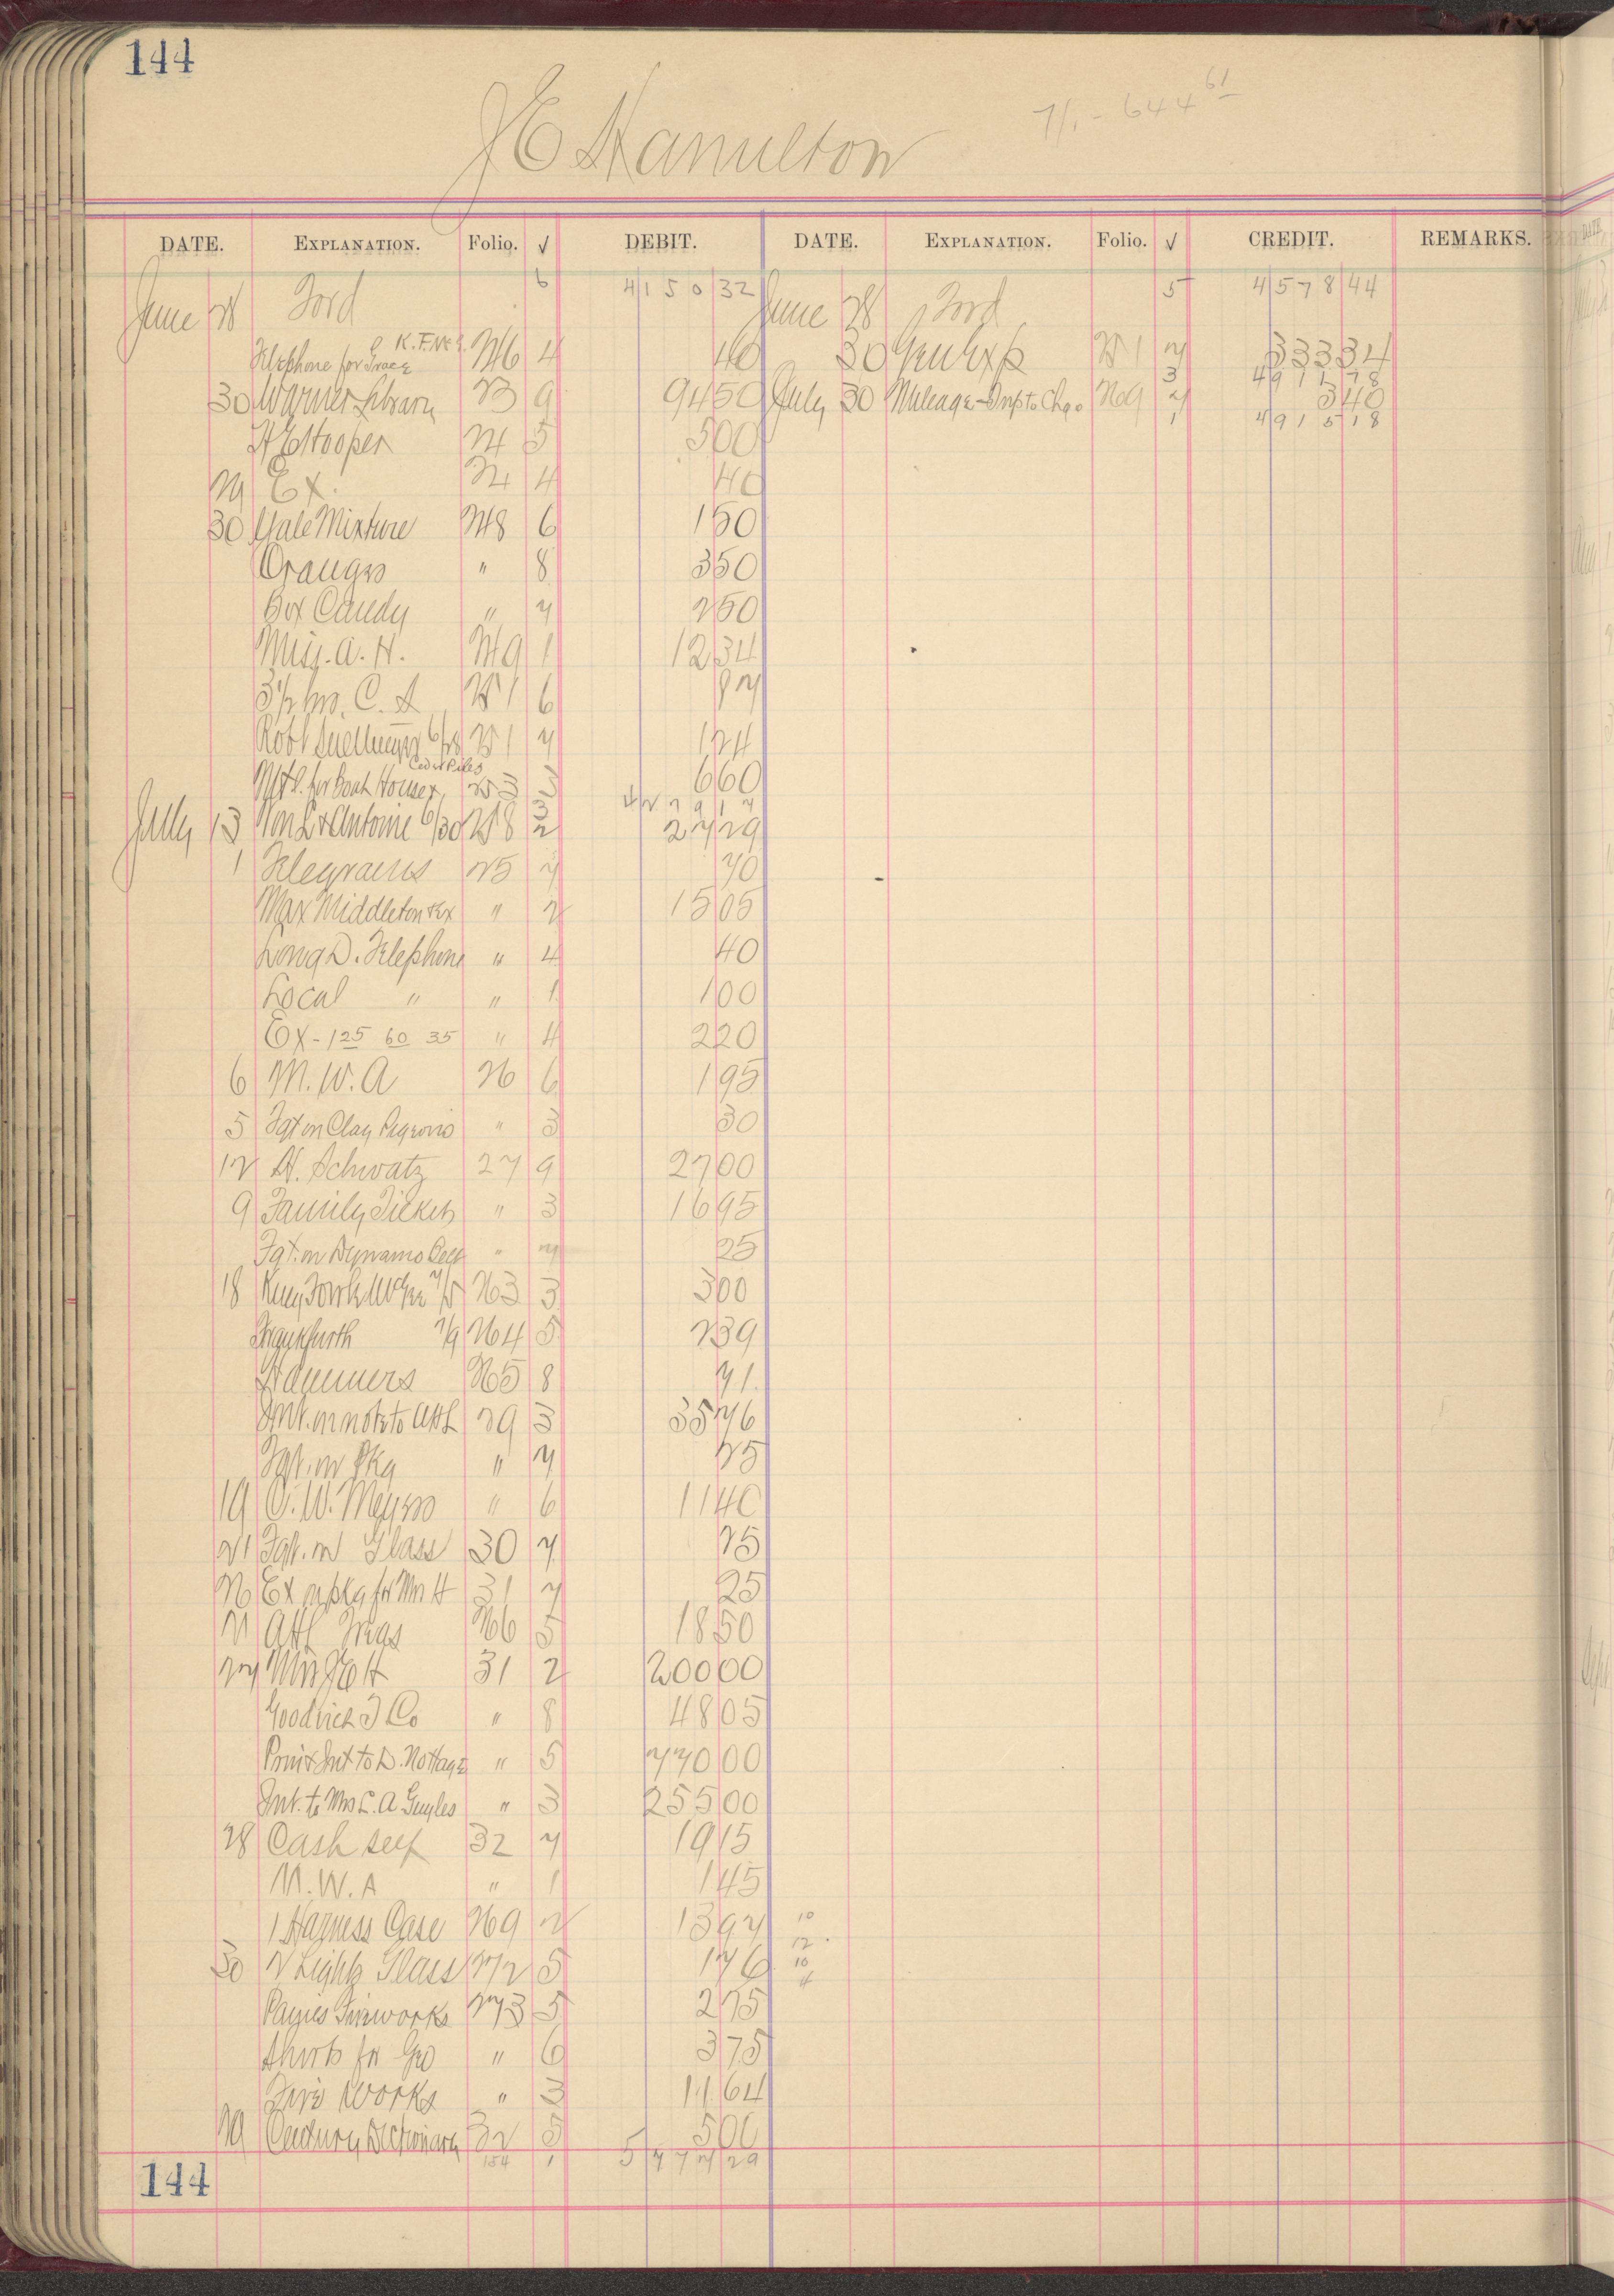 144
J E Hamilton
7/1 - 644 61
DATE. EXPLANATION. Folio. √ DEBIT. DATE. EXPLANATION. Folio. √ CREDIT. REMARKS.
June 28 Ford 6 4150 32 June 28 Ford 5 4578 44
Telephone for Grace K.F. No 2. 246 4 40 30 Gen Exp 251 7 333 34
3 4911 78
30 Warner Library 23 9 94 50 July 30 Mileage - Trip to Chgo 269 7 3 40
1 4915 18
H E Hooper 24 5 5 00
29 Ex. 24 4 40
30 Yale Mixture 248 6 1 50
Oranges " 8 3 50
Box Candy " 7 2 50
Miss. A. H. 249 1 12 34
3 1/2 hrs. C. S 251 6 87
Robt Suellmeyer 6/28 251 7 1 24
Mtl. for Boat House Cedar Piles 253 3 6 60
3 4279 17
July 13 Von L & Antoine 6/30 258 2 27 29
1 Telegrams 25 7 70
Max Middleton & Ex " 2 15 05
Long D. Telephone " 4 40
Local " " 1 1 00
Ex - 1 25 60 35 " 4 2 20
6 M. W. A 26 6 1 95
5 Fgt on Clay Pigeons " 3 30
12 H. Schwatz 27 9 27 00
9 Family Tickets " 3 16 95
Fgt. on Dynamo Belt " 7 25
18 263 3 3 00
Frankfurth 7/9 264 5 2 39
Hammers 265 8 71
Int. on note to AHL 29 3 35 76
Fgt. on Pkg " 7 25
19 O. W. Meyers " 6 11 40
21 Fgt. on Glass 30 7 25
26 Ex on pkg for Mrs H 31 7 25
21 266 5 18 50
27 Mrs J E H 31 2 200 00
Goodrich T Co " 8 48 05
Prin & Int to D. Nottage " 5 770 00
Int. to Mrs L. A Guyles " 3 255 00
28 Cash self 32 7 19 15
M. W. A " 1 1 45
1 Harness Case 269 2 13 97 10
12
30 2 Lights Glass 272 5 1 76 10
4
Paynes Fireworks 273 5 2 75
Shirts for Geo " 6 3 75
Fire Works " 3 11 64
29 Century Dictionary 32 5 5 00
154 1 5772 29
144